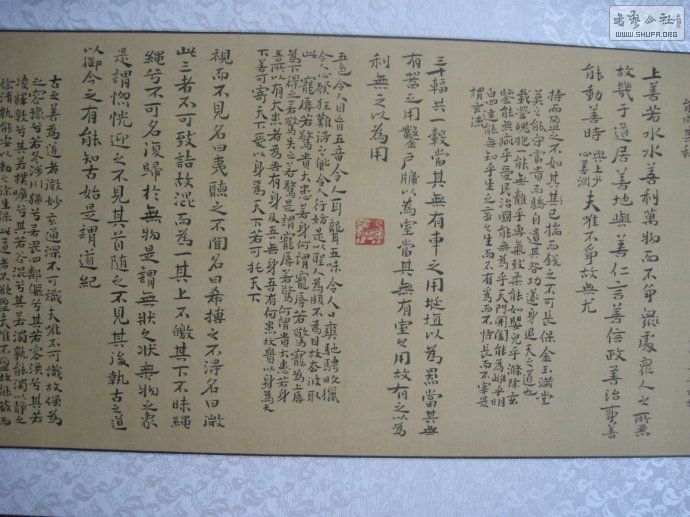 上善若水水善利萬物而不爭眾處眾人之所惡
故幾于道居善地與善仁言善信政善治事善
能動善時
與上少
心善淵
夫唯不爭故無尤
持而盈之不如其其已揣而銳之不可長保金玉滿堂
莫之能守富貴而驕自遺其咎功遂身退天之道也
載營魄抱一能無離乎專氣致柔能如嬰兒乎滌除玄
鑒能無疵乎愛民治國能無為乎天門開闔能為雌乎明
白四達能無知乎生之畜之生而不有為而不恃長而不宰是
謂玄德
三十輻共一轂當其無有車之用埏埴以為器當其無
有器之用鑿戶牖以為室當其無有室之用故有之以為
利無之以為用
五色令人目盲五音令人耳聾五味令人口爽馳騁畋獵
令人心發狂難得之貨令人行妨是以聖人為腹不為目故去彼取
此 寵辱若驚貴大患若身何謂寵辱若驚寵為上辱
為下得之若驚失之若驚是謂寵辱若驚何謂貴大患若身
吾所以有大患者為吾有身及吾無身吾有何患故貴以身為天
下若可寄天下愛以身為天下若可托天下
視而不見名曰夷聽之不聞名曰希搏之不得名曰微
此三者不可致詰故混而為一其上不皦其下不昧繩
繩兮不可名復歸於無物是謂無狀之狀無物之象
是謂惚恍迎之不見其首隨之不見其後執古之道
以御今之有能知古始是謂道紀
古之善為道者微妙玄通深不可識夫唯不可識故強為
之容豫兮若冬涉川猶兮若畏四鄰儼兮其若客渙兮其若
凌釋敦兮其若樸曠兮其若谷混兮其若濁孰能濁以靜之
徐清孰能安以動之徐生保此道者不欲盈夫唯不盈故能蔽而
书法公社
WWW.SHUFA.ORG